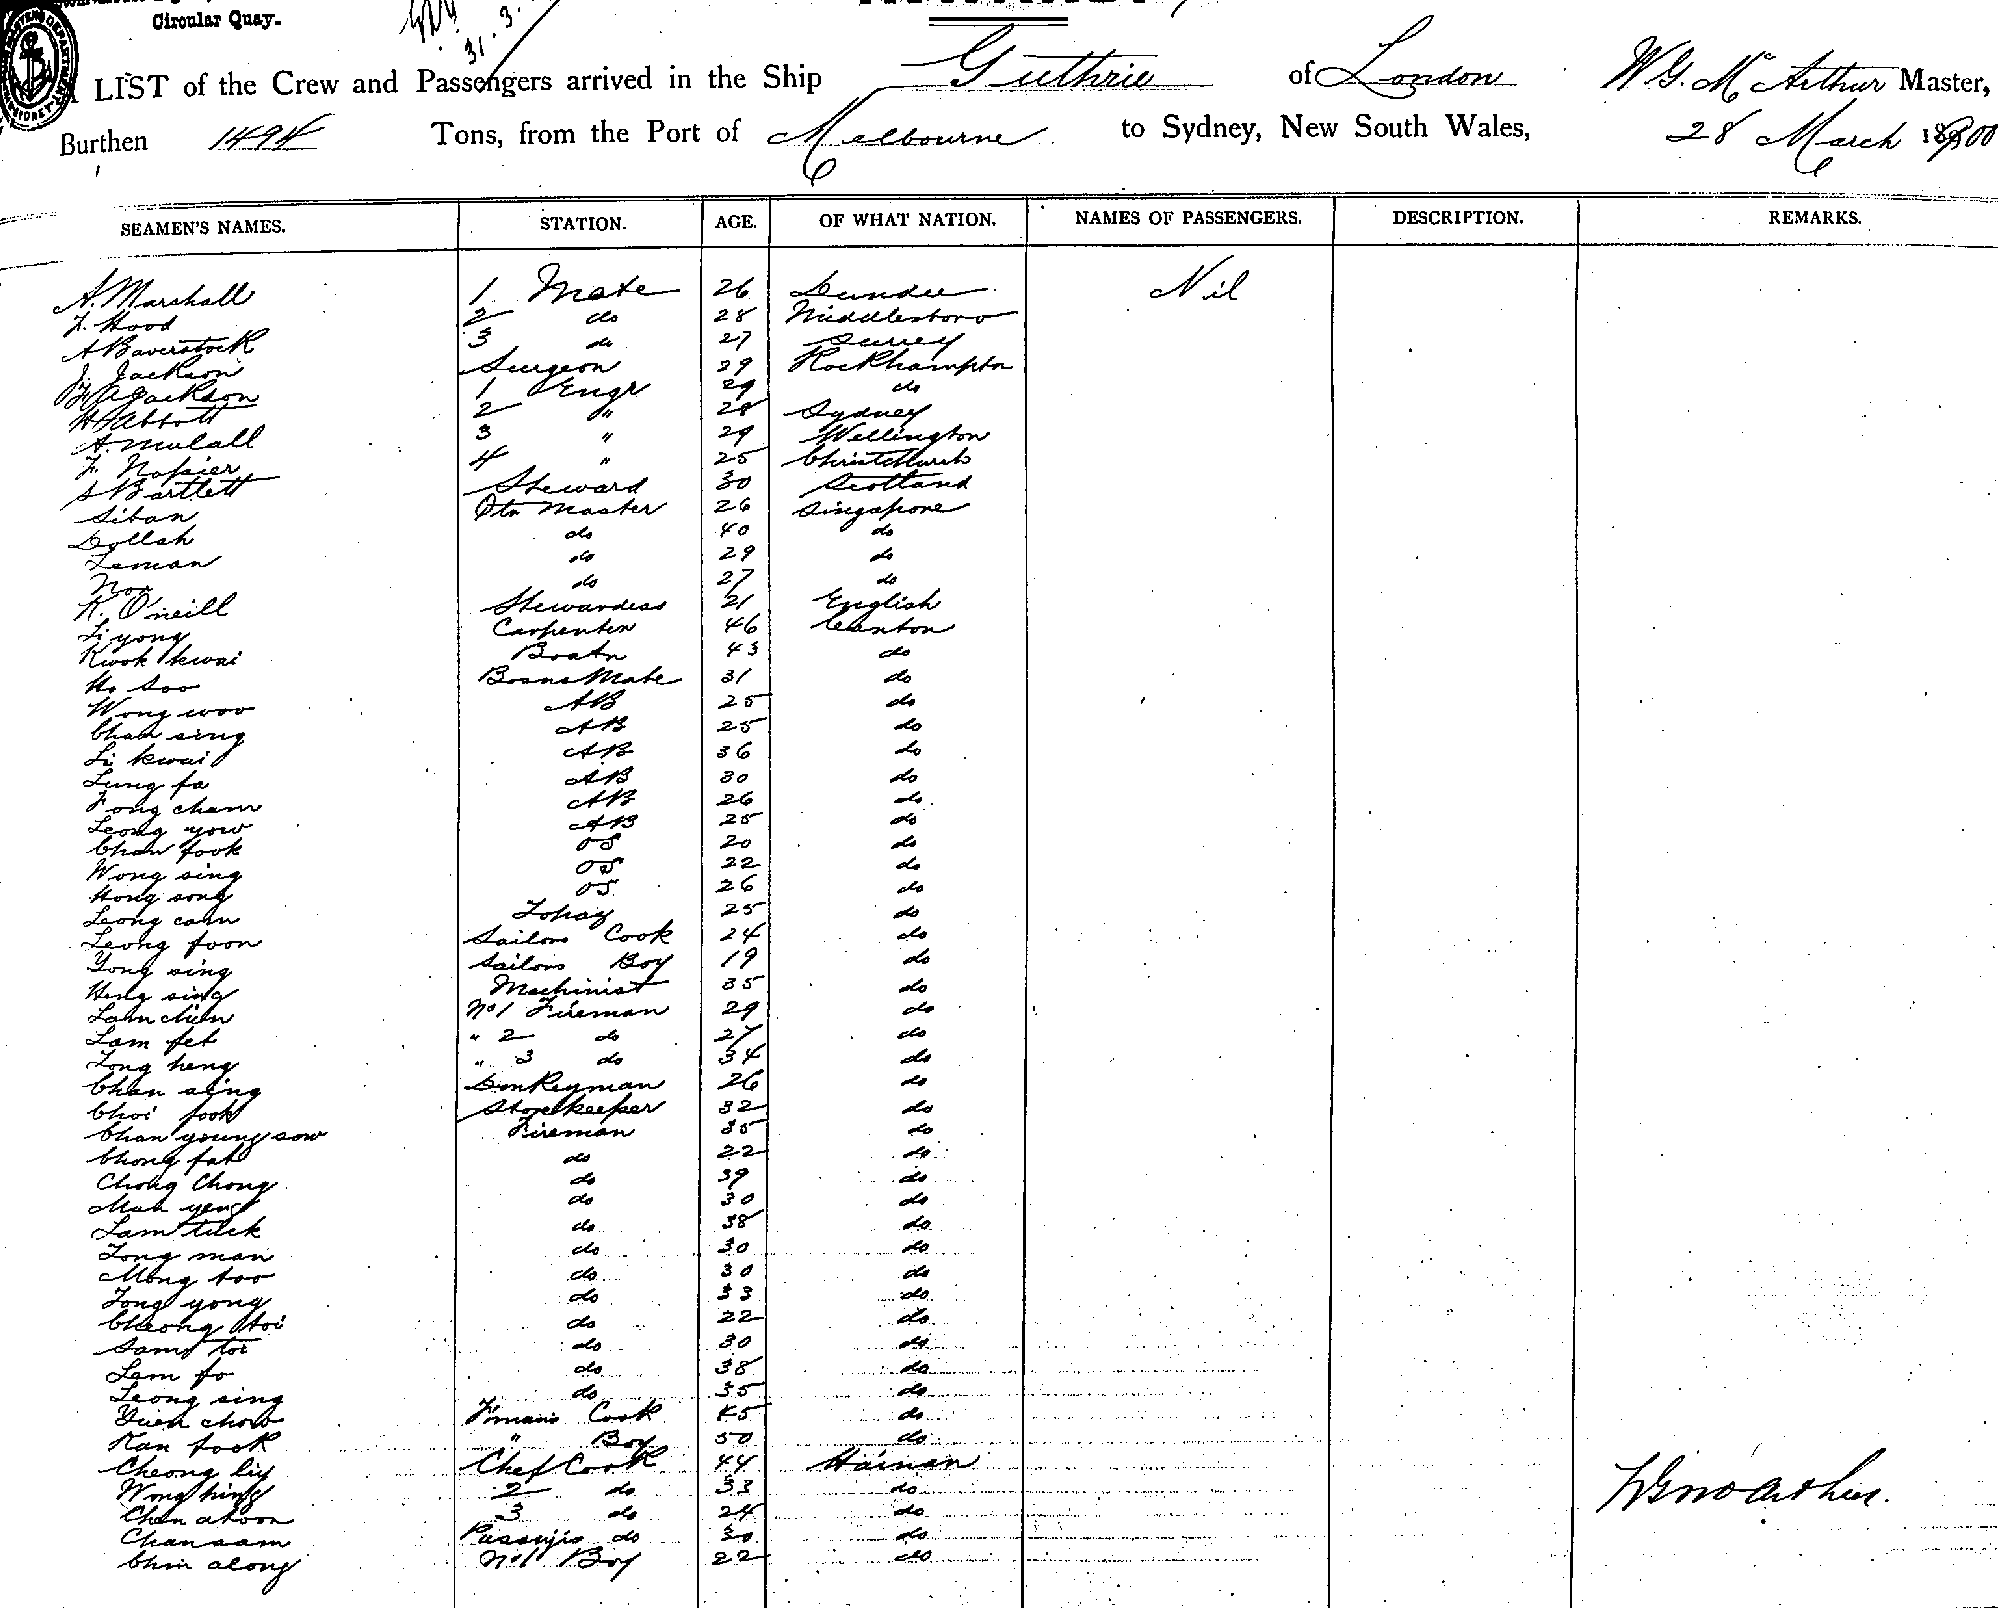 Circular Quay.
31.3.
LIST of the Crew and Passengers arrived in the Ship Guthrie of London W G. McArthur Master,
Burthen 1494 Tons, from the Port of Melbourne to Sydney, New South Wales, 28 March 1900
SEAMEN'S NAMES. STATION. AGE. OF WHAT NATION. NAMES OF PASSENGERS. DESCRIPTION. REMARKS.
A. Marshall 1 Mate 26 Dundee Nil
J. Hood 2 do 28 Middlesboro
A Baverstock 3 do 27 Surrey
J. Jackson Surgeon 29 Rockhampton
Jackson 1 Engr 29 do
H Abbott 2 " 28 Sydney
A. Mulall 3 " 29 Wellington
J. Napier 4 " 25 Christchurch
S Bartlett Steward 30 Scotland
Sitan Qtr Master 26 Singapore
Dollah do 40 do
Leman do 29 do
Nor do 27 do
K. O'neill Stewardess 21 English
Li yong Carpenter 46 Canton
Kwok kwai Boatn 43 do
Ho Soo Bosns Mate 31 do
Wong woo AB 25 do
Chan sing AB 25 do
Li kwai AB 36 do
Lung fa AB 30 do
Fong cham AB 26 do
Leong yow AB 25 do
Chan fook OS 20 do
Wong sing OS 22 do
Hong song OS 26 do
Leong cann Topay 25 do
Leong foon Sailors Cook 24 do
Yong sing Sailors Boy 19 do
Heng sing Machinist 35 do
Lam chun No 1 Fireman 29 do
Lam fet " 2 do 27 do
Tong heng " 3 do 34 do
Chan sing Donkeyman 26 do
Choi fook Storekeeper 32 do
Chan young sow Fireman 35 do
Chong fat do 22 do
Chong Chong do 39 do
Mak yeng do 30 do
Lam tuck do 38 do
Tong man do 30 do
Mong too do 30 do
Tong yong do 33 do
Cheong toi do 22 do
Sam toi do 30 do
Lam fo do 38 do
Leong sing do 35 do
Yuen chow F'mans Cook 45 do
Kan fook " Boy 50 do
Cheong liy Chef Cook 44 Hainan
Wong hing 2 do 33 do
Chin akoon 3 do 24 do
Chan sam do 30 do
Chin along No 1 Boy 22 do